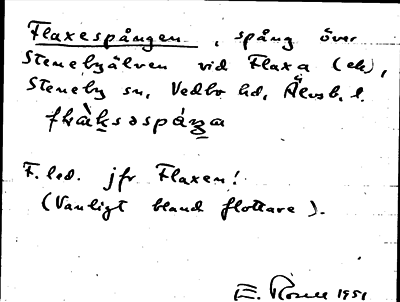 Flaxespången, spång över
Stenebyälven vid Flaxa (eh),
Steneby sn, Vedbo hd, Älvsb. l.
F. led. jfr Flaxen!
(Vanligt bland flottare).
E. Rosell 1951